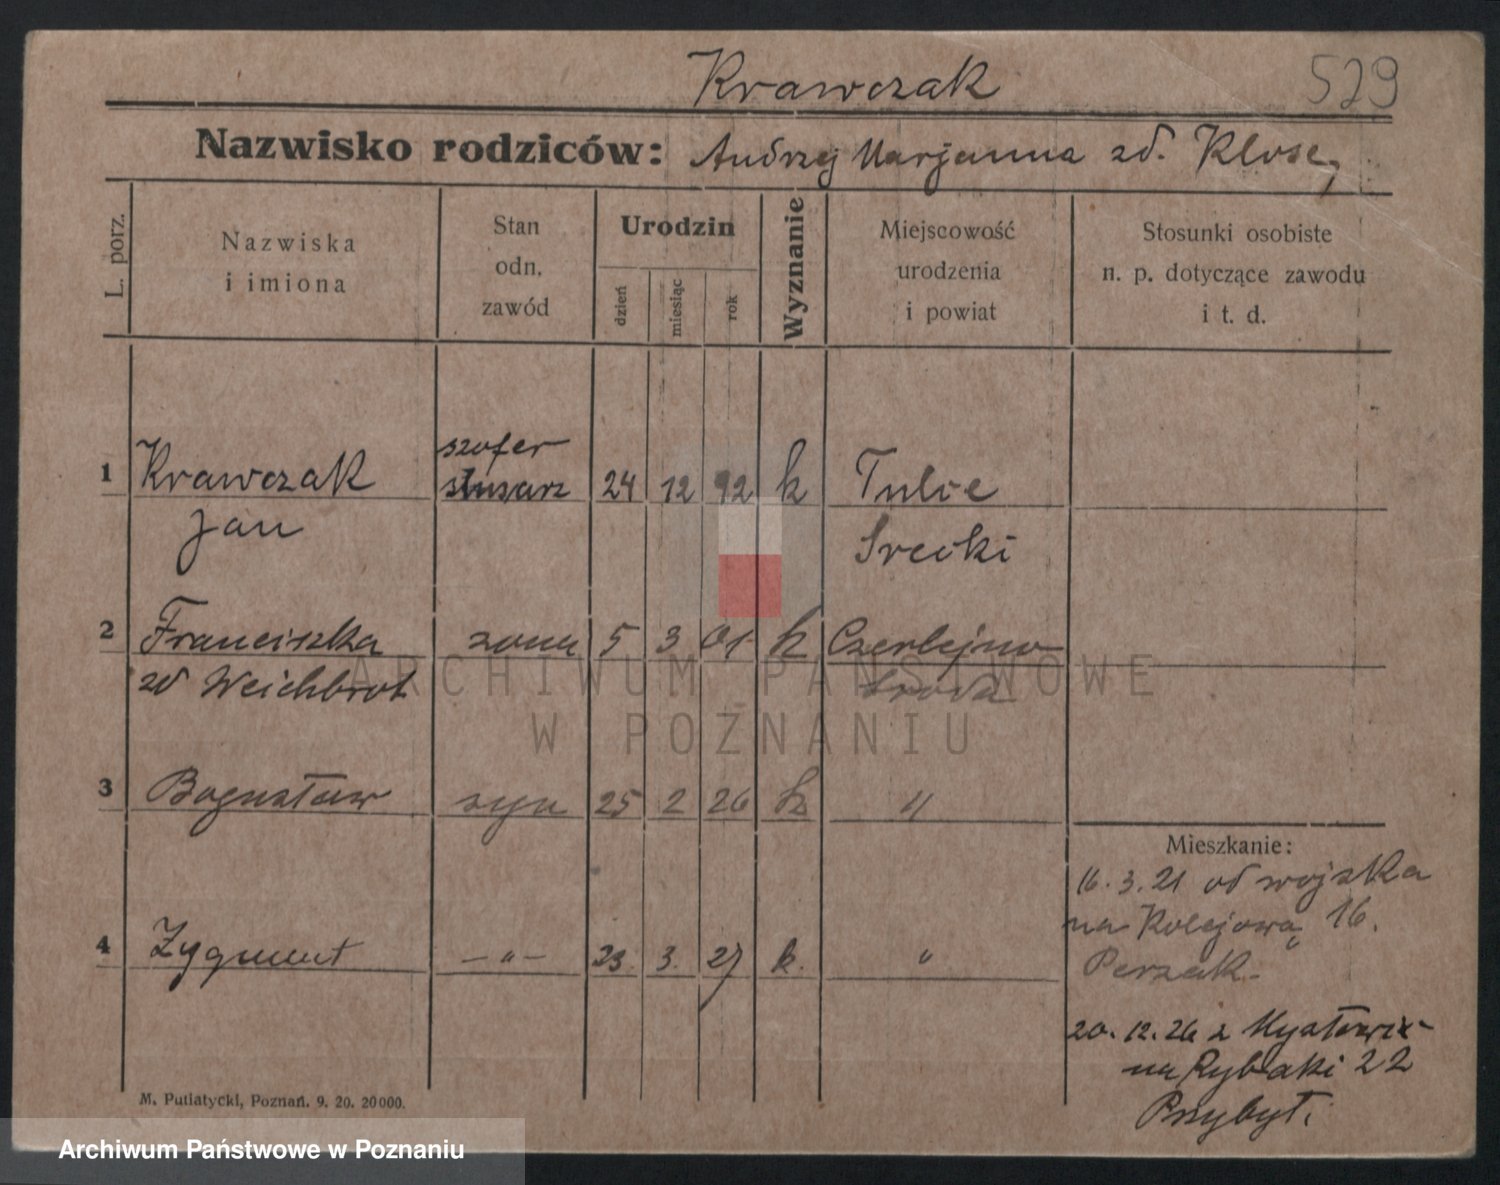 Krawczak 529
Nazwisko rodziców: Andrzej Marjanna zd. Klose,
L. porz.
Nazwiska
i imiona
Stan
odn.
zawód
Urodzin
dzień
miesiąc
rok
Wyznanie
Miejscowość
urodzenia
i powiat
Stosunki osobiste
n. p. dotyczące zawodu
i t. d.
szofer
1 Krawczak ślusarz 24 12 92 k Tulce
Jan Srecki
2 Franciszka żona 5 3 01 k Czerlejno
zd Weichbrot środa
3 Bogusław syn 25 2 26 k "
Mieszkanie:
16. 3. 21 od wojska
na Kolejową 16.
4 Zygmunt – " – 23. 3. 27 k. "
20. 12. 26 z
na Rybaki 22
Przybył.
M. Putiatycki, Poznań. 9. 20. 20000.
ARCHIWUM PAŃSTWOWE
W POZNANIU
Archiwum Państwowe w Poznaniu